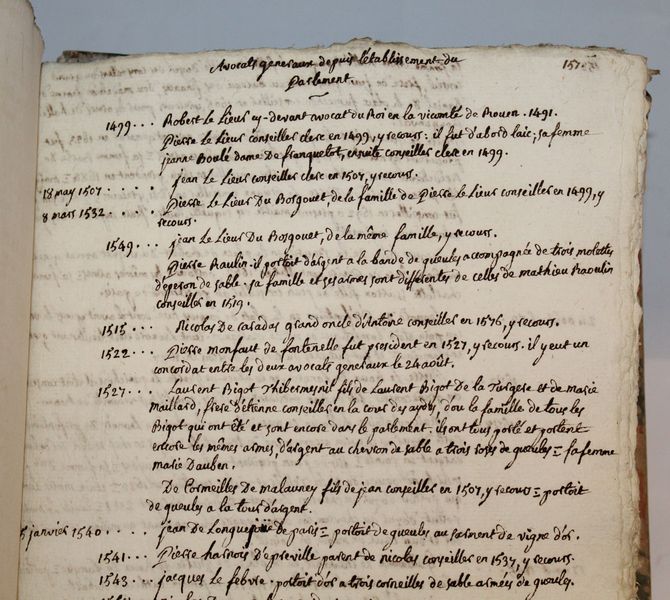 Avocats generaux depuis l'établissement du
Parlement.
157.
1499... Robert Le Lieur cy-devant avocat du Roi en la vicomté de Rouen. 1491.
Pierre Le Lieur conseiller clerc en 1499, y recours: il fut d'abord laic; sa femme
jeanne Boulé dame de franquelot, ensuite conseiller clerc en 1499.
18 may 1507.... jean Le Lieur conseiller clerc en 1507, y recours.
8 mars 1532.... Pierre Le Lieur Du Bosgouet, de la famille de Pierre Le Lieur conseiller en 1499, y
recours.
1549... jean Le Lieur Du Bosgouet, de la même famille, y recours.
Pierre Raulin. il portoit d'argent a la bande de gueules accompagnée de trois molettes
d'eperon de sable. sa famille et ses armes sont differentes de celles de mathieu Raoulin
conseiller en 1519.
1515... Nicolas De caradas grand oncle d'antoine conseiller en 1576, y recours.
1522... Pierre monfaut de fontenelle fut president en 1527, y recours. il y eut un
concordat entre les deux avocats generaux le 24 août.
1527... Laurent Bigot Thibermesnil fils de Laurent Bigot De la et de marie
maillard, frere d'étienne conseiller en la cour des aydes, d'ou la famille de tous les
Bigot qui ont été et sont encore dans le parlement. ils ont tous porté et portent
encore les mêmes armes, d'argent au chevron de sable a trois roses de gueules = sa femme
marie Dauben.
De Cormeilles De malauney fils de jean conseiller en 1507, y recours = portoit
de gueules a la tour d'argent.
5 janvier 1540.... jean De de paris = portoit de gueules au sarment de vigne d'or.
1541... Pierre harnois D'epreville parent de nicolas conseiller en 1537, y recours.
1543... jacques Le febvre. portoit d'or a trois corneilles de sable armées de gueules.